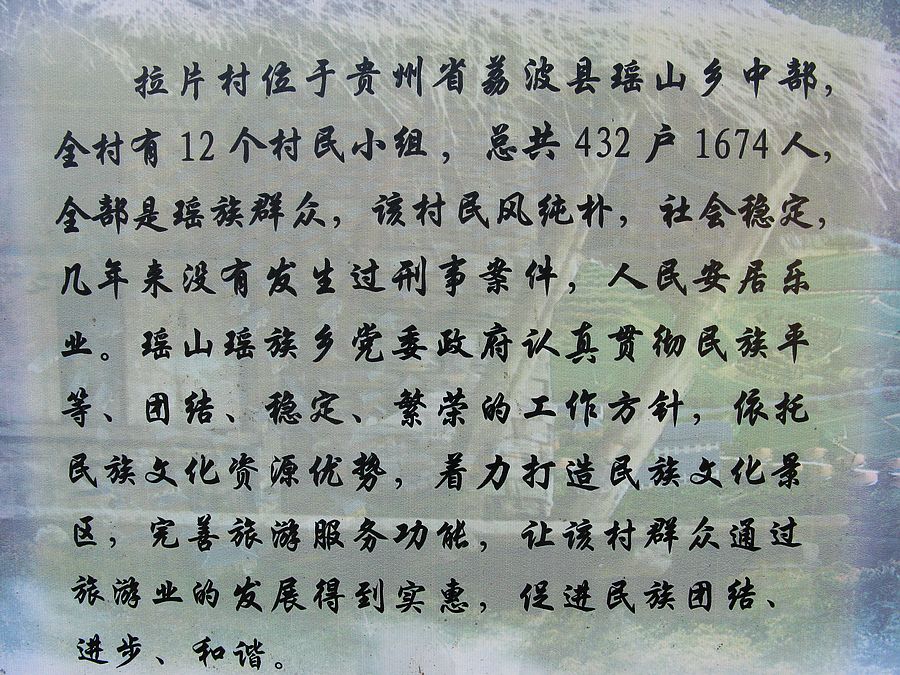 拉片村位于贵州省荔波县瑶山乡中部，
全村有12个村民小组，总共432户1674人，
全部是瑶族群众，该村民风纯朴，社会稳定，
几年来没有发生过刑事案件，人民安居乐
业。瑶山瑶族乡党委政府认真贯彻民族平
等、团结、稳定、繁荣的工作方针，依托
民族文化资源优势，着力打造民族文化景
区，完善旅游服务功能，让该村群众通过
旅游业的发展得到实惠，促进民族团结、
进步、和谐。